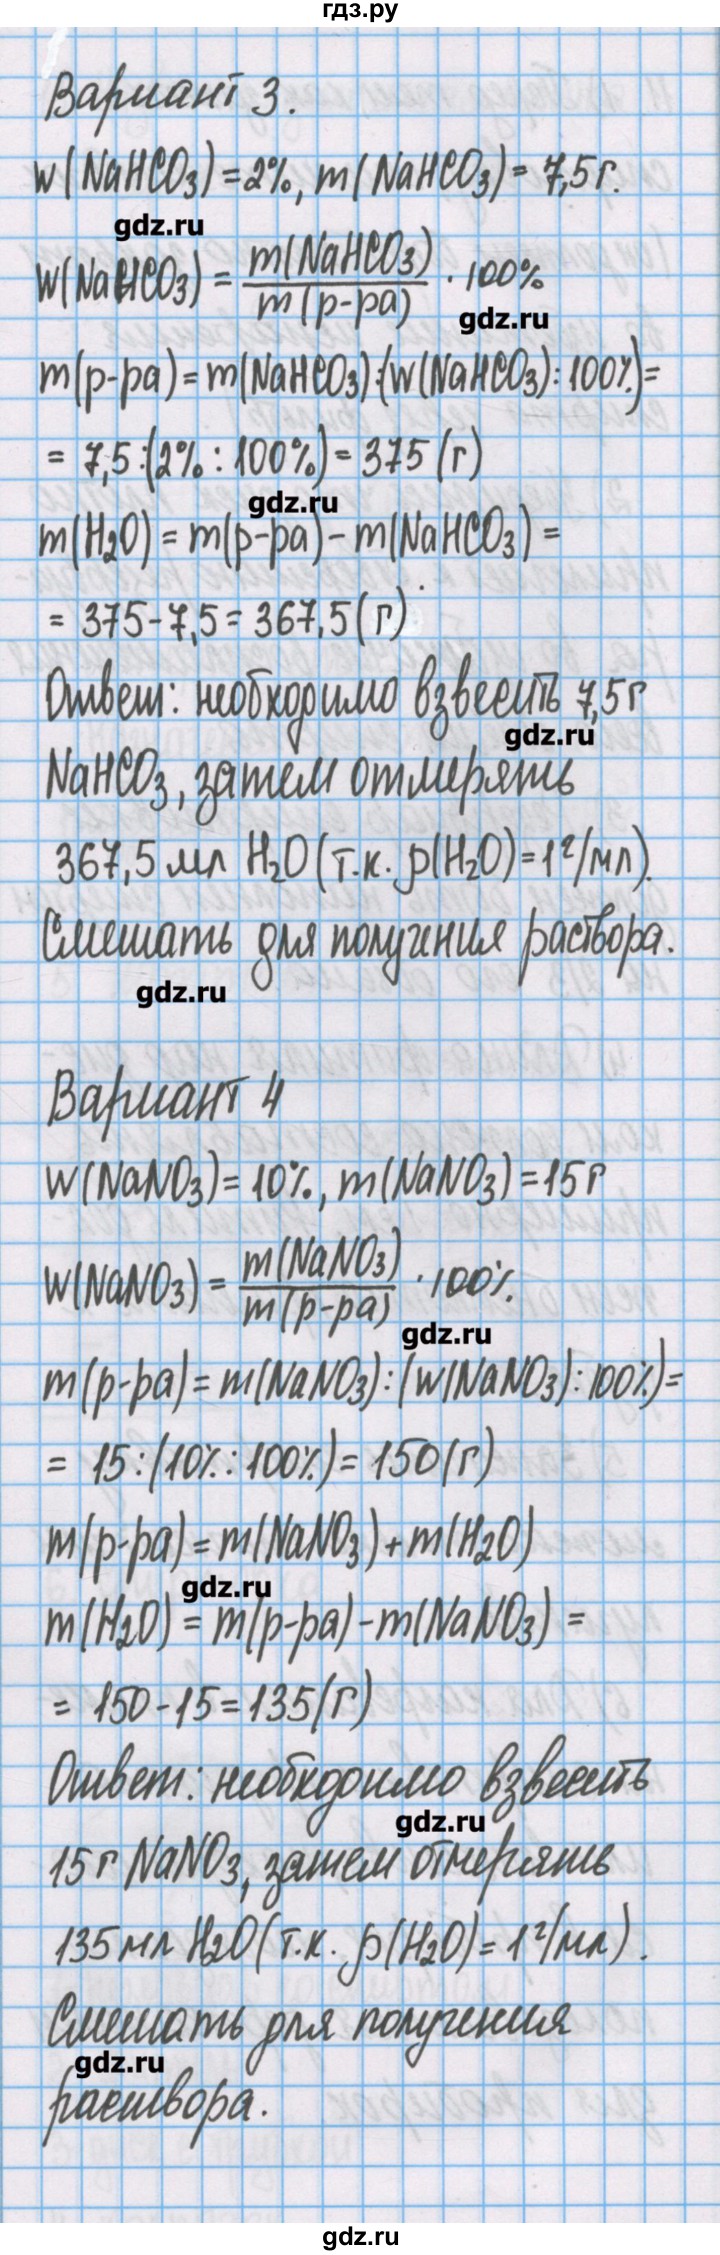 гдз.ру
Вариант 3.
w(NaHCO3)=2%, m(NaHCO3)=7,5г.
gdz.ru
w(NaHCO3) = m(NaHCO3)/m(р-ра) · 100%
gdz.ru
m(р-ра)=m(NaHCO3):(w(NaHCO3):100%)=
= 7,5:(2%:100%)=375(г)
gdz.ru
m(H2O)=m(р-ра)-m(NaHCO3)=
= 375-7,5=367,5(г)
Ответ: необходимо взвесить 7,5г
gdz.ru
NaHCO3, затем отмерять
367,5 мл H2O(т.к. ρ(H2O)=1г/мл).
Смешать для получения раствора.
gdz.ru
Вариант 4
w(NaNO3)=10%, m(NaNO3)=15г
w(NaNO3) = m(NaNO3)/m(р-ра) · 100%
gdz.ru
m(р-ра)=m(NaNO3):(w(NaNO3):100%)=
= 15:(10%:100%)=150(г)
m(р-ра)=m(NaNO3)+m(H2O)
gdz.ru
m(H2O)=m(р-ра)-m(NaNO3)=
= 150-15=135(г)
Ответ: необходимо взвесить
gdz.ru
15г NaNO3, затем отмерять
135мл H2O(т.к. ρ(H2O)=1г/мл).
Смешать для получения
gdz.ru
раствора.
gdz.ru